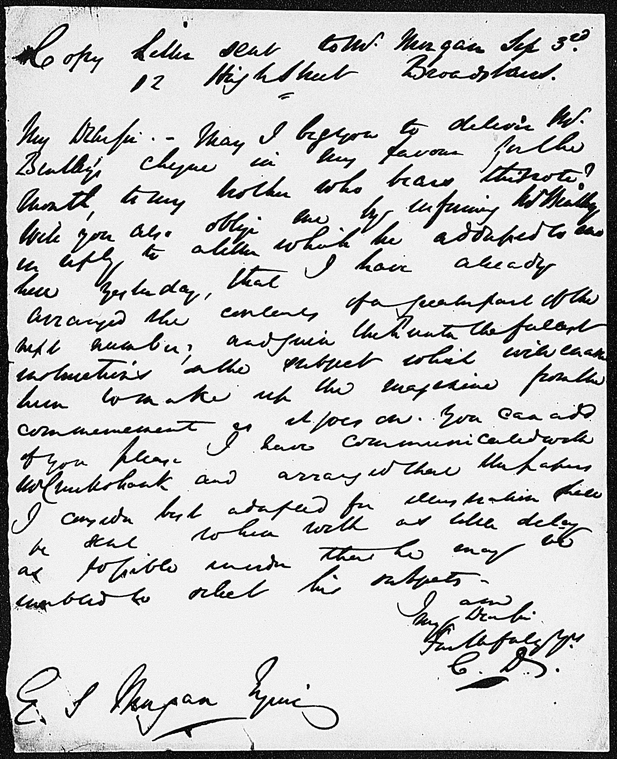 Copy Letter sent to Mr. Morgan Sep 3rd.
12 High Street Broadstairs.
My Dear Sir. - May I beg you to deliver Mr.
Bentley's cheque in my favour for the
month, to my brother who bears this note?
Will you also oblige me by informing Mr Bentley
in reply to a letter which he addressed to me
here yesterday, that I have already
arranged the contents of a greater part of the
next number; and given the fullest
instructions on the subject which will enable
him to make up the magazine from the
commencement as it goes on. You can add
if you please I have communicated with
Mr Cruikshank and arranged that the papers
I consider best adapted for illustration shall
be sent to him with as little delay
as possible in order that he may be
enabled to select his subjects -
I am
My Dear Sir
Faithfully Yrs.
C. D.
E. S Morgan Esquire